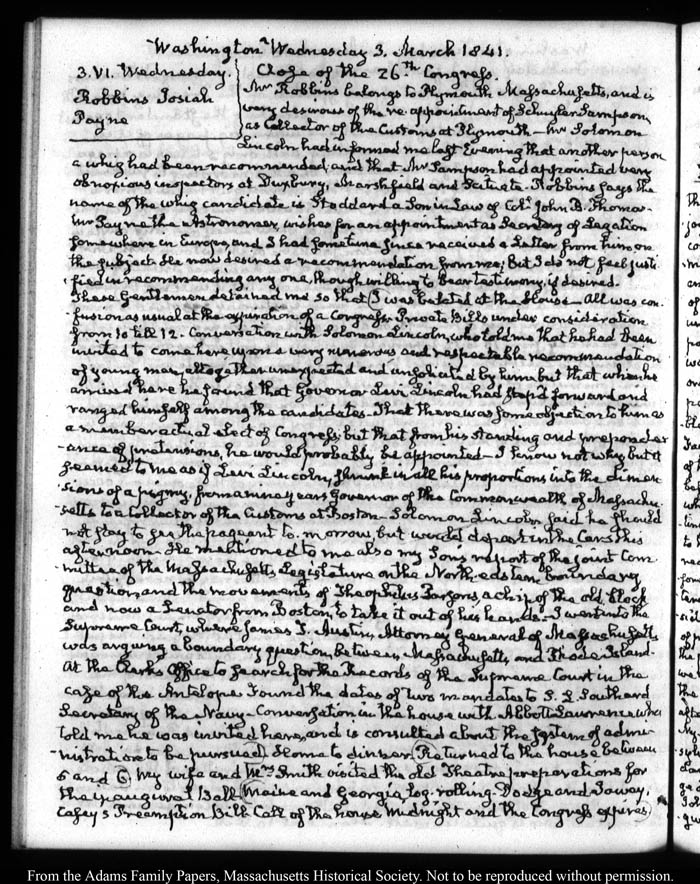 Washington Wednesday 3. March 1841.
3. VI. Wednesday.
Robbins Josiah
Payne
Close of the 26th Congress.
Mr Robbins belongs to Plymouth Massachusetts, and is
very desirous of the re-appointment of Schuyler Sampson,
as Collector of the Customs at Plymouth — Mr Solomon
Lincoln had informed me last Evening that another person
a whig had been recommended; and that Mr Sampson had appointed very
obnoxious inspectors at Duxbury, Marshfield and Scituate. Robbins says the
name of the whig candidate is Stoddard a Son in Law of Coll. John B. Thomas.
Mr Payne the Astronomer, wishes for an appointment as Secretary of Legation
somewhere in Europe, and I had sometime since received a Letter from him on
the subject. He now desired a recommendation from me; But I do not feel justi-
-fied in recommending any one, though willing to bear testimony if desired.
These Gentlemen detained me so that I was belated at the House — All was con-
fusion as usual at the expiration of a Congress. Private Bills under consideration
from 10 till 12. Conversation with Solomon Lincoln, who told me that he had been
invited to come here upon a very numerous and respectable recommendation
of young men, altogether unexpected and unsolicited by him; but that when he
arrived here he found that Governor Levi Lincoln had step'd forward and
ranged himself among the candidates — That there was some objection to him as
a member actual elect of Congress; but that from his standing and preponder
-ance of pretensions, he would probably be appointed — I know not why, but it
seemed to me as if Levi Lincoln, shrunk in all his proportions into the dimen
-sions of a pigmy, from a nine years Governor of the Commonwealth of Massachu-
-setts to a Collector of the Customs at Boston. Solomon Lincoln said he should
not stay to see the pageant to-morrow, but would depart in the Cars this
afternoon. He mentioned to me also my Son's report of the joint Com-
-mittee of the Massachusetts Legislature on the North-eastern boundary
question, and the movements of Theophilus Parsons, a chip of the old block
and now a Senator from Boston, to take it out of his hands. I went into the
Supreme Court, where James T. Austin, Attorney General of Massachusetts
was arguing a boundary question, between Massachusetts and Rhode Island.
At the Clerk's Office to search for the Records of the Supreme Court in the
case of the Antelope. I found the dates of two mandates to S. L. Southard
Secretary of the Navy. Conversation in the house with Abbott Lawrence who
told me he was invited here, and is consulted about the system of admi
-nistration to be pursued. Home to dinner. Returned to the house between
5 and 6. My wife and Mrs Smith visited the old Theatre preparations for
the inaugural Ball. Maine and Georgia log-rolling. Dodge and Towey,
Casey's Preemption Bill. Call of the house. Midnight and the Congress expires.
From the Adams Family Papers, Massachusetts Historical Society. Not to be reproduced without permission.